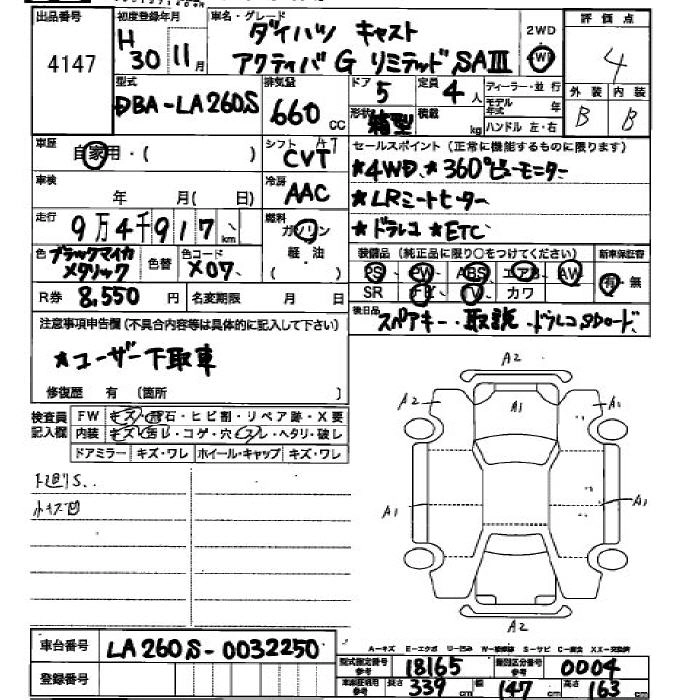 出品番号 4147
初度登録年月 H30 11月
車名・グレード ダイハツ キャスト
アクティバ G リミテッド SAⅢ
2WD
4WD
評価点 4
外装 内装
B B
型式 DBA-LA260S
排気量 660 CC
ドア 5
定員 4人
形状 箱型
積載 kg
ディーラー・並行
モデル年式 年
ハンドル 左・右
車歴 自家用・( )
シフト AT
CVT
セールスポイント (正常に機能するものに限ります)
★4WD、★360°ビューモニター
★LRシートヒーター
★ドラレコ ★ETC
車検 年 月( 日)
冷房 AAC
走行 9万4千917km
燃料 ガソリン
軽・油
( )
色 ブラックマイカメタリック
色替
色コード X07
装備品 (純正品に限り○をつけてください)
PS、PW、ABS、エアB、AW
SR ナビ、TV、カワ
新車保証書
有・無
R券 8,550 円
名変期限 月 日
後日品 スペアキー・取説・ドラレコSDカード
注意事項申告欄 (不具合内容等は具体的に記入して下さい)
★ユーザー下取車
修復歴 有 (箇所 )
検査員記入欄
FW キズ・飛石・ヒビ割・リペア跡・X要
内装 キズ・汚レ・コゲ・穴・スレ・ヘタリ・破レ
ドアミラー キズ・ワレ ホイール・キャップ キズ・ワレ
小キズ凹
A2
A2 A1 A1
A1 A1
A2
車台番号 LA260S-0032250
登録番号
A-キズ E-エクボ U-凹み W-補修跡 S-サビ C-腐食 XX-交換済
型式指定番号 参考 18165
類別区分番号 参考 0004
車体証明用 参考 長さ 339 cm 幅 147 cm 高さ 163 cm